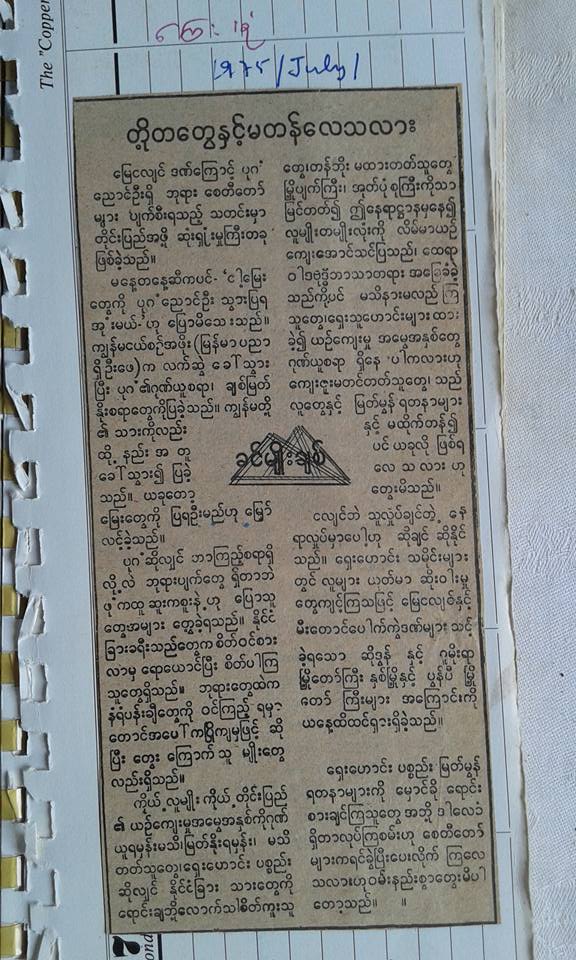 The "Copper
ကြေး ၊ မုံ
1975/July/
တို့တတွေနှင့်မတန်လေသလား
မြေငလျင် ဒဏ်ကြောင့် ပုဂံ
ညောင်ဦးရှိ ဘုရား စေတီတော်
များ ပျက်စီးရသည့် သတင်းမှာ
တိုင်းပြည်အဖို့ ဆုံးရှုံးမှုကြီးတခု
ဖြစ်ခဲ့သည်။
မနေ့တနေ့ဆီကပင်- 'ငါ့မြေး
တွေကို ပုဂံ ညောင်ဦး သွားပြရ
အုံးမယ်-'ဟု ပြောမိသေးသည်။
ကျွန်မငယ်စဉ်အဖိုး (မြန်မာပညာ
ရှိဦးဖေ)က လက်ဆွဲ ခေါ်သွား
ပြီး ပုဂံ၏ဂုဏ်ယူစရာ၊ ချစ်မြတ်
နိုးစရာတွေကိုပြခဲ့သည်။ ကျွန်မတို့
၏ သားကိုလည်း
ထို့ နည်း အ တူ
ခေါ်သွား၍ ပြခဲ့
သည်။ ယခုတော့
မြေးတွေကို ပြရဦးမည်ဟု မျှော်
လင့်ခဲ့သည်။
ပုဂံဆိုလျှင် ဘာကြည့်စရာရှိ
လို့လဲ ဘုရားပျက်တွေ ရှိတာဘဲ
ဖုံကထူ ဆူးကစူးနဲ့ဟု ပြောသူ
တွေအများ တွေ့ခဲ့ရသည်။ နိုင်ငံ
ခြားခရီးသည်တွေက စိတ်ဝင်စား
လာမှ ရောယောင်ပြီး စိတ်ပါကြ
သူတွေရှိသည်။ ဘုရားတွေထဲက
နံရံပန်းချီတွေကို ဝင်ကြည့် ရမှာ
တောင်အပေါ်ကပြိုကျမှဖြင့် ဆို
ပြီး တွေး ကြောက် သူ မျိုးတွေ
လည်းရှိသည်။
ကိုယ့်လူမျိုး ကိုယ့်တိုင်းပြည်
၏ ယဉ်ကျေးမှုအမွေအနှစ်ကိုဂုဏ်
ယူရမှန်းမသိ၊မြတ်နိုးရမှန်း၊ မသိ
တတ်သူတွေ၊ရှေးဟောင်း ပစ္စည်း
ဆိုလျှင် နိုင်ငံခြား သားတွေကို
ရောင်းချဘို့လောက်သာစိတ်ကူးသူ
တွေ၊တန်ဘိုး မထားတတ်သူတွေ
မြို့ပျက်ကြီး၊ အုတ်ပုံစုကြီးကိုသာ
မြင်တတ်၍ ဤနေရာဋ္ဌာနမှနေ၍
လူမျိုးတမျိုးလုံးကို လိမ်မာယဉ်
ကျေးအောင်သင်ပြသည်၊ ထေရ
ဝါဒဗုဒ္ဓဘာသာတရား အခြေခံခဲ့
သည်ကိုပင် မသိနားမလည် ကြ
သူတွေ၊ရှေးသူဟောင်းများ ထား
ခဲ့၍ ယဉ်ကျေးမှု အမွေအနှစ်တွေ
ဂုဏ်ယူစရာ ရှိနေ ပါကလားဟု
ကျေးဇူးမတင်တတ်သူတွေ၊ သည်
လူတွေနှင့် မြတ်မွန် ရတနာများ
နှင့် မထိုက်တန်၍
ပင် ယခုလို ဖြစ်ရ
လေ သ လား ဟု
တွေးမိသည်။
ခင်မျိုးချစ်
ငလျင်ဘဲ သူလှုပ်ချင်တဲ့ နေ
ရာလှုပ်မှာပေါ့ဟု ဆိုချင် ဆိုနိုင်
သည်။ ရှေးဟောင်း သမိုင်းများ
တွင် လူများ ယုတ်မာ ဆိုးဝါးမှု
တွေကျင့်ကြသဖြင့် မြေငလျင်နှင့်
မီးတောင်ပေါက်ကွဲဒဏ်များ သင့်
ခဲ့ရသော ဆိုဒွန် နှင့် ဂူမိုးရာ
မြို့တော်ကြီး နှစ်မြို့နှင့် ပွန်ပီ မြို့
တော် ကြီးများ အကြောင်းကို
ယနေ့ထိထင်ရှားရှိခဲ့သည်။
ရှေးဟောင်း ပစ္စည်း မြတ်မွန်
ရတနာများကို မှောင်ခို ရောင်း
စားချင်ကြသူတွေ အဘို့ ဒါလေးဘဲ
ရှိတာလုပ်ကြစမ်းဟု စေတီတော်
များကရင်ခွဲပြီးပေးလိုက် ကြလေ
သလားဟုဝမ်းနည်းစွာတွေးမိပါ
တော့သည်။ ။
7
ond